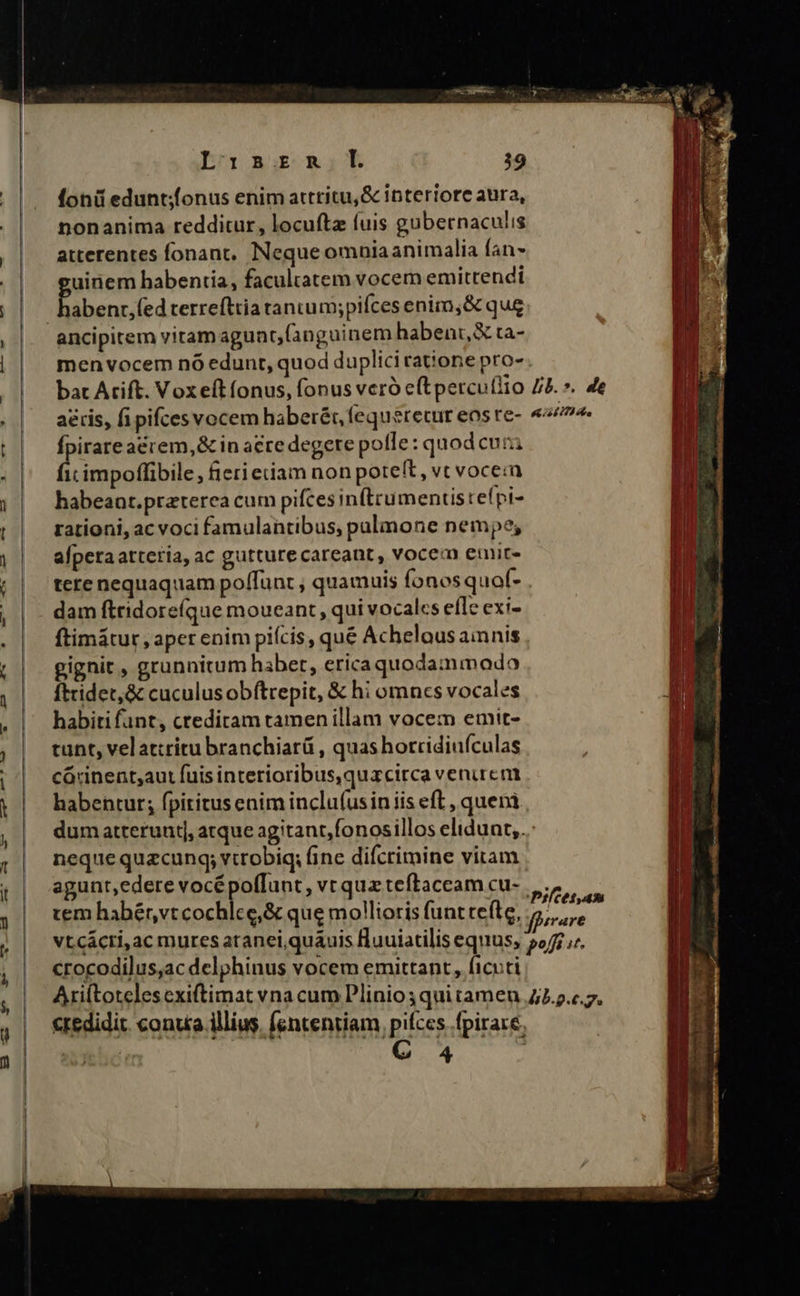 LIBER I. 39
ſonū edunt; ſonus enim attritu, & interiore aura,
non anima redditur, locuſtæ ſuis gubernaculis
atterentes ſonant. Neque omnia animalia ſan-
guinem habentia, facultatem vocem emittendi
habent, ſed terreſtria tantum; piſces enim, & quę
ancipitem vitam agunt, ſanguinem habent, & ta-
men vocem nō edunt, quod duplici ratione pro-
bat Ariſt. Vox eſt ſonus, ſonus verò eſt percuſſio lib. 2. de
aëris, ſi piſces vocem haberēt, ſequeretur eos re- anima.
ſpirare aërem, & in aëre degere poſſe: quod cum
ſit impoſſibile, fieri etiam non poteſt, vt vocem
habeant. præterea cum piſces inſtrumentis reſpi-
rationi, ac voci famulantibus, pulmone nempe,
aſpera arteria, ac gutture careant, vocem emit-
tere nequaquam poſſunt; quamuis ſonos quoſ-
dam ſtridoreſque moueant, qui vocales eſſe exi-
ſtimātur, aper enim piſcis, quē Achelous amnis
gignit, grunnitum habet, erica quodammodo
ſtridet, & cuculus obſtrepit, & hi omnes vocales
habiti ſunt, creditam tamen illam vocem emit-
tunt, vel attritu branchiarū, quas horridiuſculas
cōtinent, aut ſuis interioribus, quæ circa ventrem
habentur; ſpiritus enim incluſus in iis eſt, quem
dum atterunt, atque agitant, ſonos illos elidunt,
neque quæcunq; vtrobiq; ſine diſcrimine vitam
agunt, edere vocē poſſunt, vt quæ teſtaceam cu- Piſces, an
tem habēt, vt cochleę, & quę mollioris ſunt teſtę, ſpirare
vt cācri, ac mures aranei, quāuis fluuiatilis equus, poſſi it.
crocodilus, ac delphinus vocem emittant, ſicuti
Ariſtoteles exiſtimat vna cum Plinio; qui tamen lib. 9. c. 7.
credidit contra illius ſententiam piſces ſpirare,
C 4